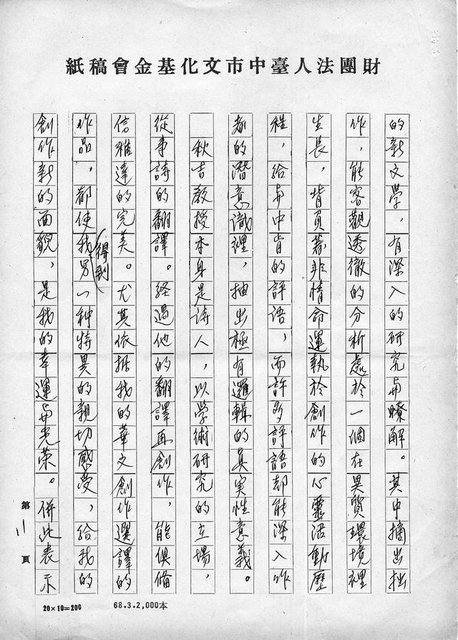 財團法人臺中市文化基金會稿紙
的新文學，有深入的研究與瞭解。其中摘出拙
作，能客觀透徹的分析處於一個在異質環境裡
生長，背負著非情命運執於創作的心靈活動歷
程，給與中肯的評語，而許多評語都能深入作
者的潛意識裡，抽出極有邏輯的真實性意義。
秋吉教授本身是詩人，以學術研究的立場，
從事詩的翻譯。經過他的翻譯再創作，能俱備
信雅達的完美。尤其依据我的華文創作選譯的
作品，都使我得到另一種特異的親切感受，給我的
創作新的面貌，是我的幸運與光榮。併此表示
第 11 頁
20×10=200 68.3.2,000本